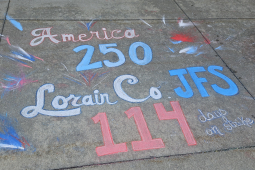 America
250
Lorain Co JFS
114 days
on strike